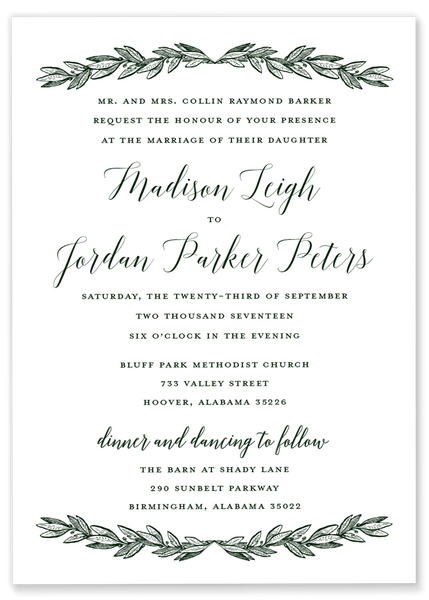 MR. AND MRS. COLLIN RAYMOND BARKER
REQUEST THE HONOUR OF YOUR PRESENCE
AT THE MARRIAGE OF THEIR DAUGHTER
Madison Leigh
TO
Jordan Parker Peters
SATURDAY, THE TWENTY-THIRD OF SEPTEMBER
TWO THOUSAND SEVENTEEN
SIX O'CLOCK IN THE EVENING
BLUFF PARK METHODIST CHURCH
733 VALLEY STREET
HOOVER, ALABAMA 35226
dinner and dancing to follow
THE BARN AT SHADY LANE
290 SUNBELT PARKWAY
BIRMINGHAM, ALABAMA 35022